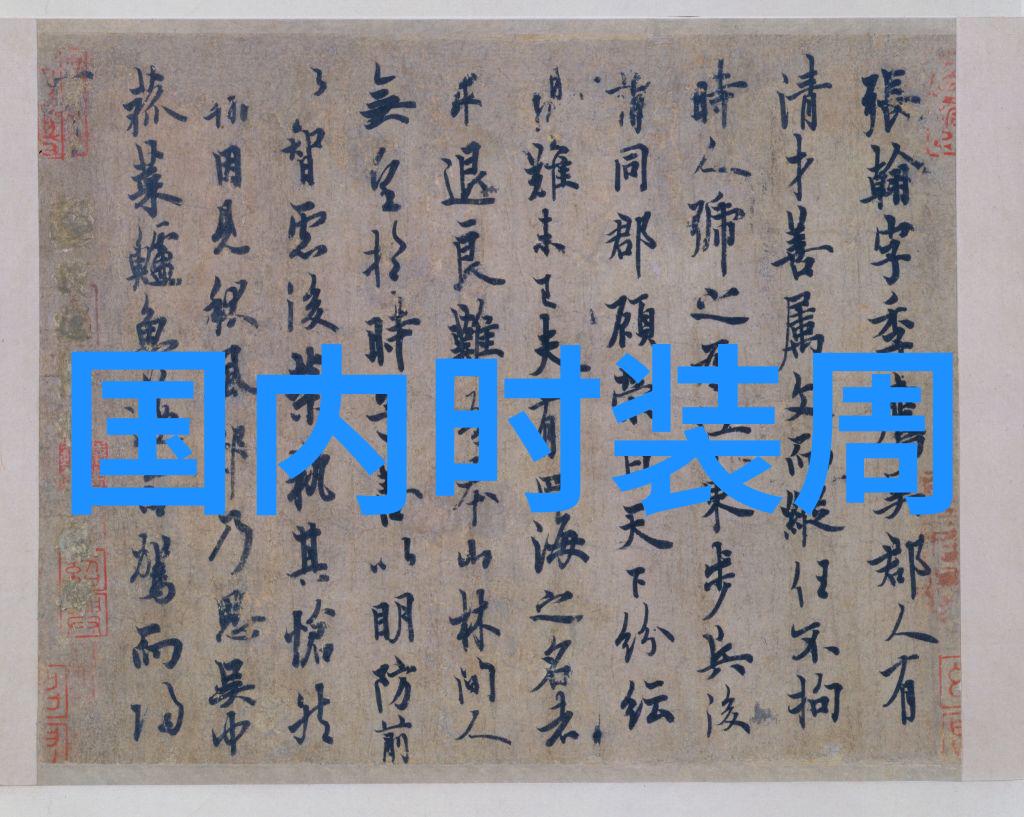 国内时装周
張翰字季吳郡人有
清才善屬文而縱任不拘
時人號之江東步兵後
謂同郡顧榮曰天下紛紜
難未已夫有四海之名者
求退良難吾本山林間人
無望於時以明防前
以智慮後榮執其愴然
翰因見秋風起乃思吳中
菰菜鱸魚駕而歸